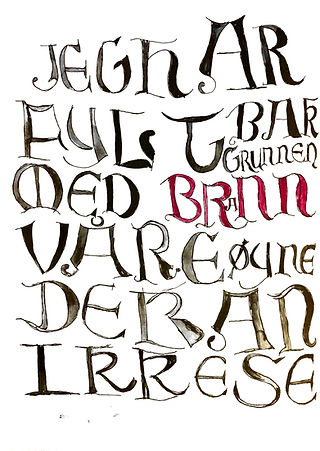 JEG HAR
FYLT BAK
GRUNNEN
MED BRANN
VÅRE ØYNE
DE KAN
IKKE SE